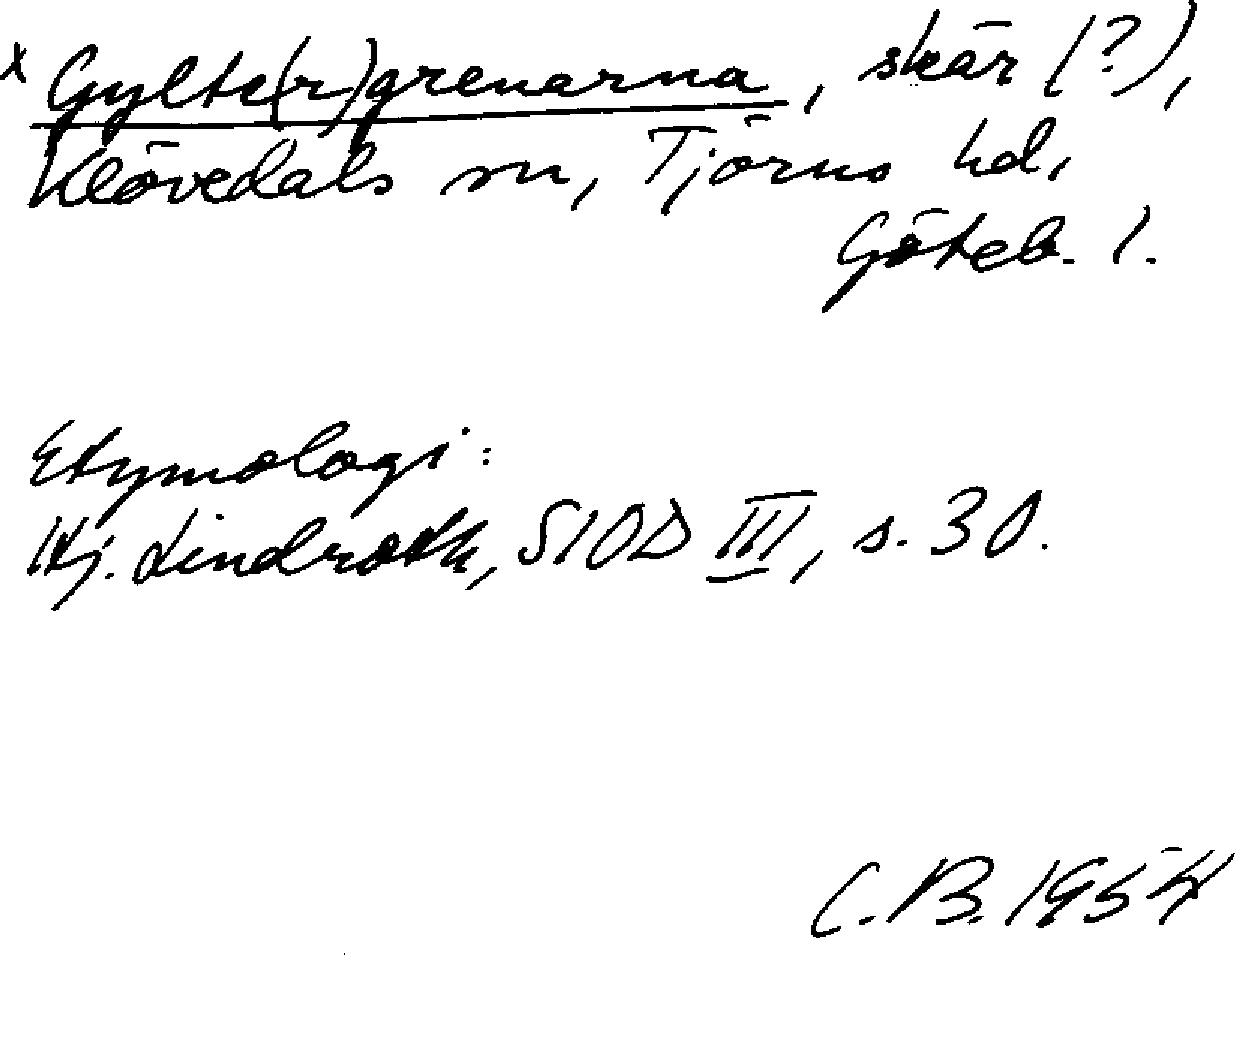 x Gylte(r)grenarna, skär (?),
Klövedals sn, Tjörns hd,
Göteb. l.
Etymologi:
Hj. Lindroth, SIOD III, s. 30.
C.B. 1954